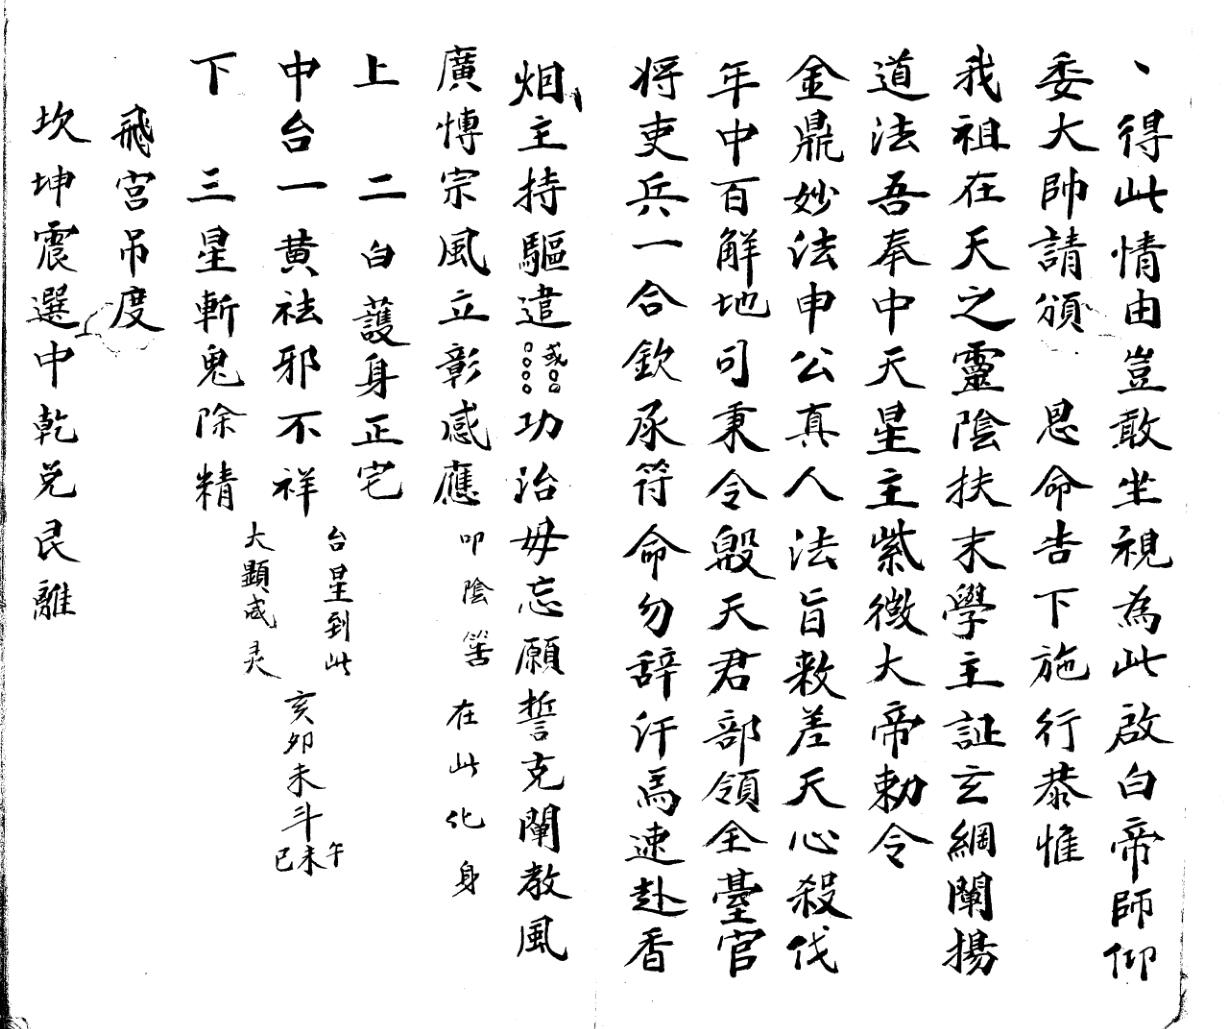 、得此情由豈敢坐視為此啟白帝師仰
委大帥請頒 恩命告下施行恭惟
我祖在天之靈陰扶末學主証玄綱闡揚
道法吾奉中天星主紫微大帝勅令
金鼎妙法申公真人法旨敕差天心殺伐
年中百解地司秉令殷天君部領全臺官
将吏兵一合欽承符命勿辞汗馬速赴香
烟主持驅遣或○○○○○○功治毋忘願誓克闡教風
廣愽宗風立彰感應
叩陰
在此化身
上 二白䕶身正宅
中台一黄祛邪不祥
台星到此
大顯威灵
亥卯未斗
午未巳
下 三星斬鬼除精
飛宮吊度
坎坤震巽中乾兑艮離